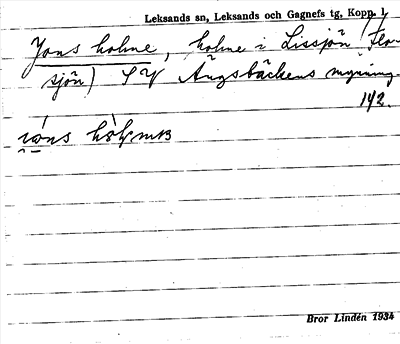 Leksands sn, Leksands och Gagnefs tg, Kopp. l.
Jons holme, holme i Lissjön (Flo-
sjön) SV Ängsbäckens mynning.
142.
Bror Lindén 1934